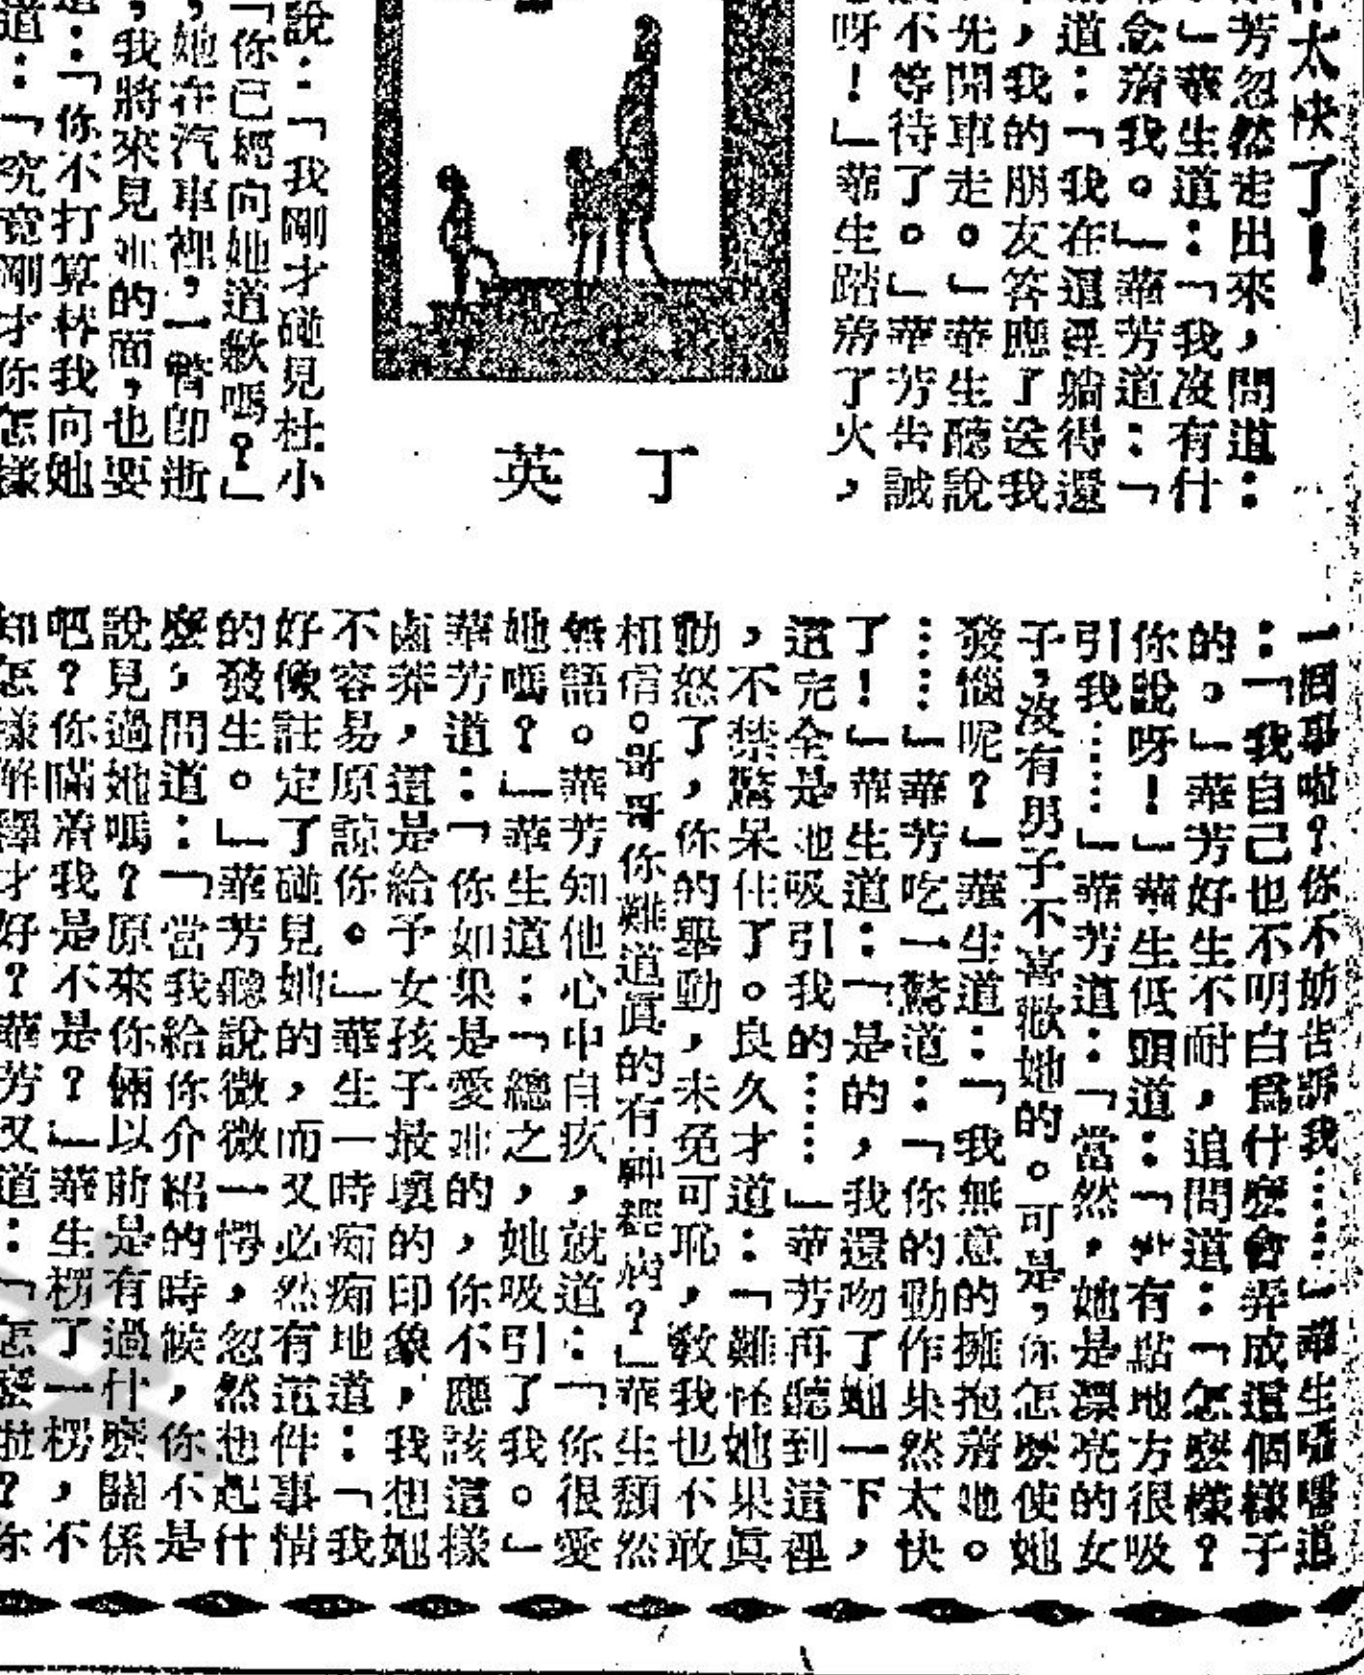 太快了！
芳忽然走出來，問道：
」華生道：「我沒有什
念着我。」華芳道：「
道：「我在這裡躺得還
，我的朋友答應了送我
先開車走。」華生聽說
不等待了。」華芳告誡
呀！」華生踏着了火，
丁英
說：「我剛才碰見杜小
「你已經向她道歉嗎？」
，她在汽車裡，一瞥即逝
，我將來見她的面，也要
：「你不打算替我向她
道：「究竟剛才你怎樣
一回事啦？你不妨告訴我……」華生囁嚅道
：「我自己也不明白爲什麽會弄成這個樣子
的。」華芳好生不耐，追問道：「怎麽樣？
你說呀！」華生低頭道：「她有點地方很吸
引我……」華芳道：「當然，她是漂亮的女
子，沒有男子不喜歡她的。可是，你怎麽使她
發惱呢？」華生道：「我無意的擁抱着她。
……」華芳吃一驚道：「你的動作果然太快
了！」華生道：「是的，我還吻了她一下，
這完全是她吸引我的……」華芳再聽到這裡
，不禁驚呆住了。良久才道：「難怪她果眞
動怒了，你的舉動，未免可恥，敎我也不敢
相信。哥哥你難道眞的有神經病？」華生頹然
無語。華芳知他心中自疚，就道：「你很愛
她嗎？」華生道：「總之，她吸引了我。」
華芳道：「你如果是愛她的，你不應該這樣
鹵莽，這是給予女孩子最壞的印象，我想她
不容易原諒你。」華生一時痴痴地道：「我
好像註定了碰見她的，而又必然有這件事情
的發生。」華芳聽說微微一愕，忽然想起什
麽，問道：「當我給你介紹的時候，你不是
說見過她嗎？原來你倆以前是有過什麽關係
吧？你瞞着我是不是？」華生楞了一楞，不
知怎樣解釋才好？華芳又道：「怎麽啦？你